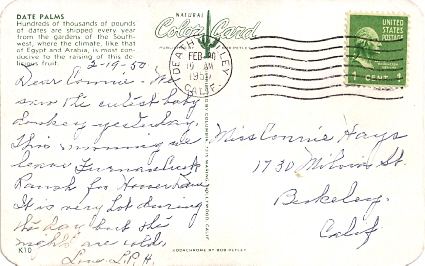 DATE PALMS
Hundreds of thousands of pounds
of dates are shipped every year
from the gardens of the South-
west, where the climate, like that
of Egypt and Arabia, is most con-
ducive to the raising of this de-
licious fruit.
NATURAL
Color Card
DEATH VALLEY
FEB
10 AM
CALIF
UNITED
STATES
POSTAGE
1 CENT 1
2-9-50
Dear Connie: We
saw the cutest baby
donkey yesterday.
This morning we
leave Furnace Creek
Ranch for
It is very hot during
the day but the
nights are cold.
Love L.P.H.
K10
Miss Connie Hays
1730 Milvia St.
Berkeley
Calif
KODACHROME BY BOB PETLEY